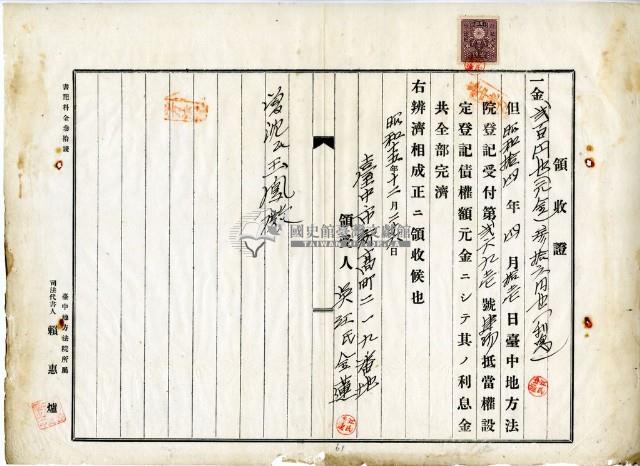 領收證
一金貳百円也(元金)拾六円也(利息)
但昭和拾四年四月拾壱日臺中地方法
院登記受付第貳六九壱號抵當權設
定登記債權額元金ニシテ其ノ利息金
共全部完濟
右辨濟相成正ニ領收候也
昭和十五年十二月二十八日
臺中市高町二一九番地
領收人 吳江氏金蓮
沈氏玉鳳殿
國史館臺灣文獻館
TAIWAN
書記料金參拾錢
臺中地方法院所屬
司法代書人 賴惠爐
61